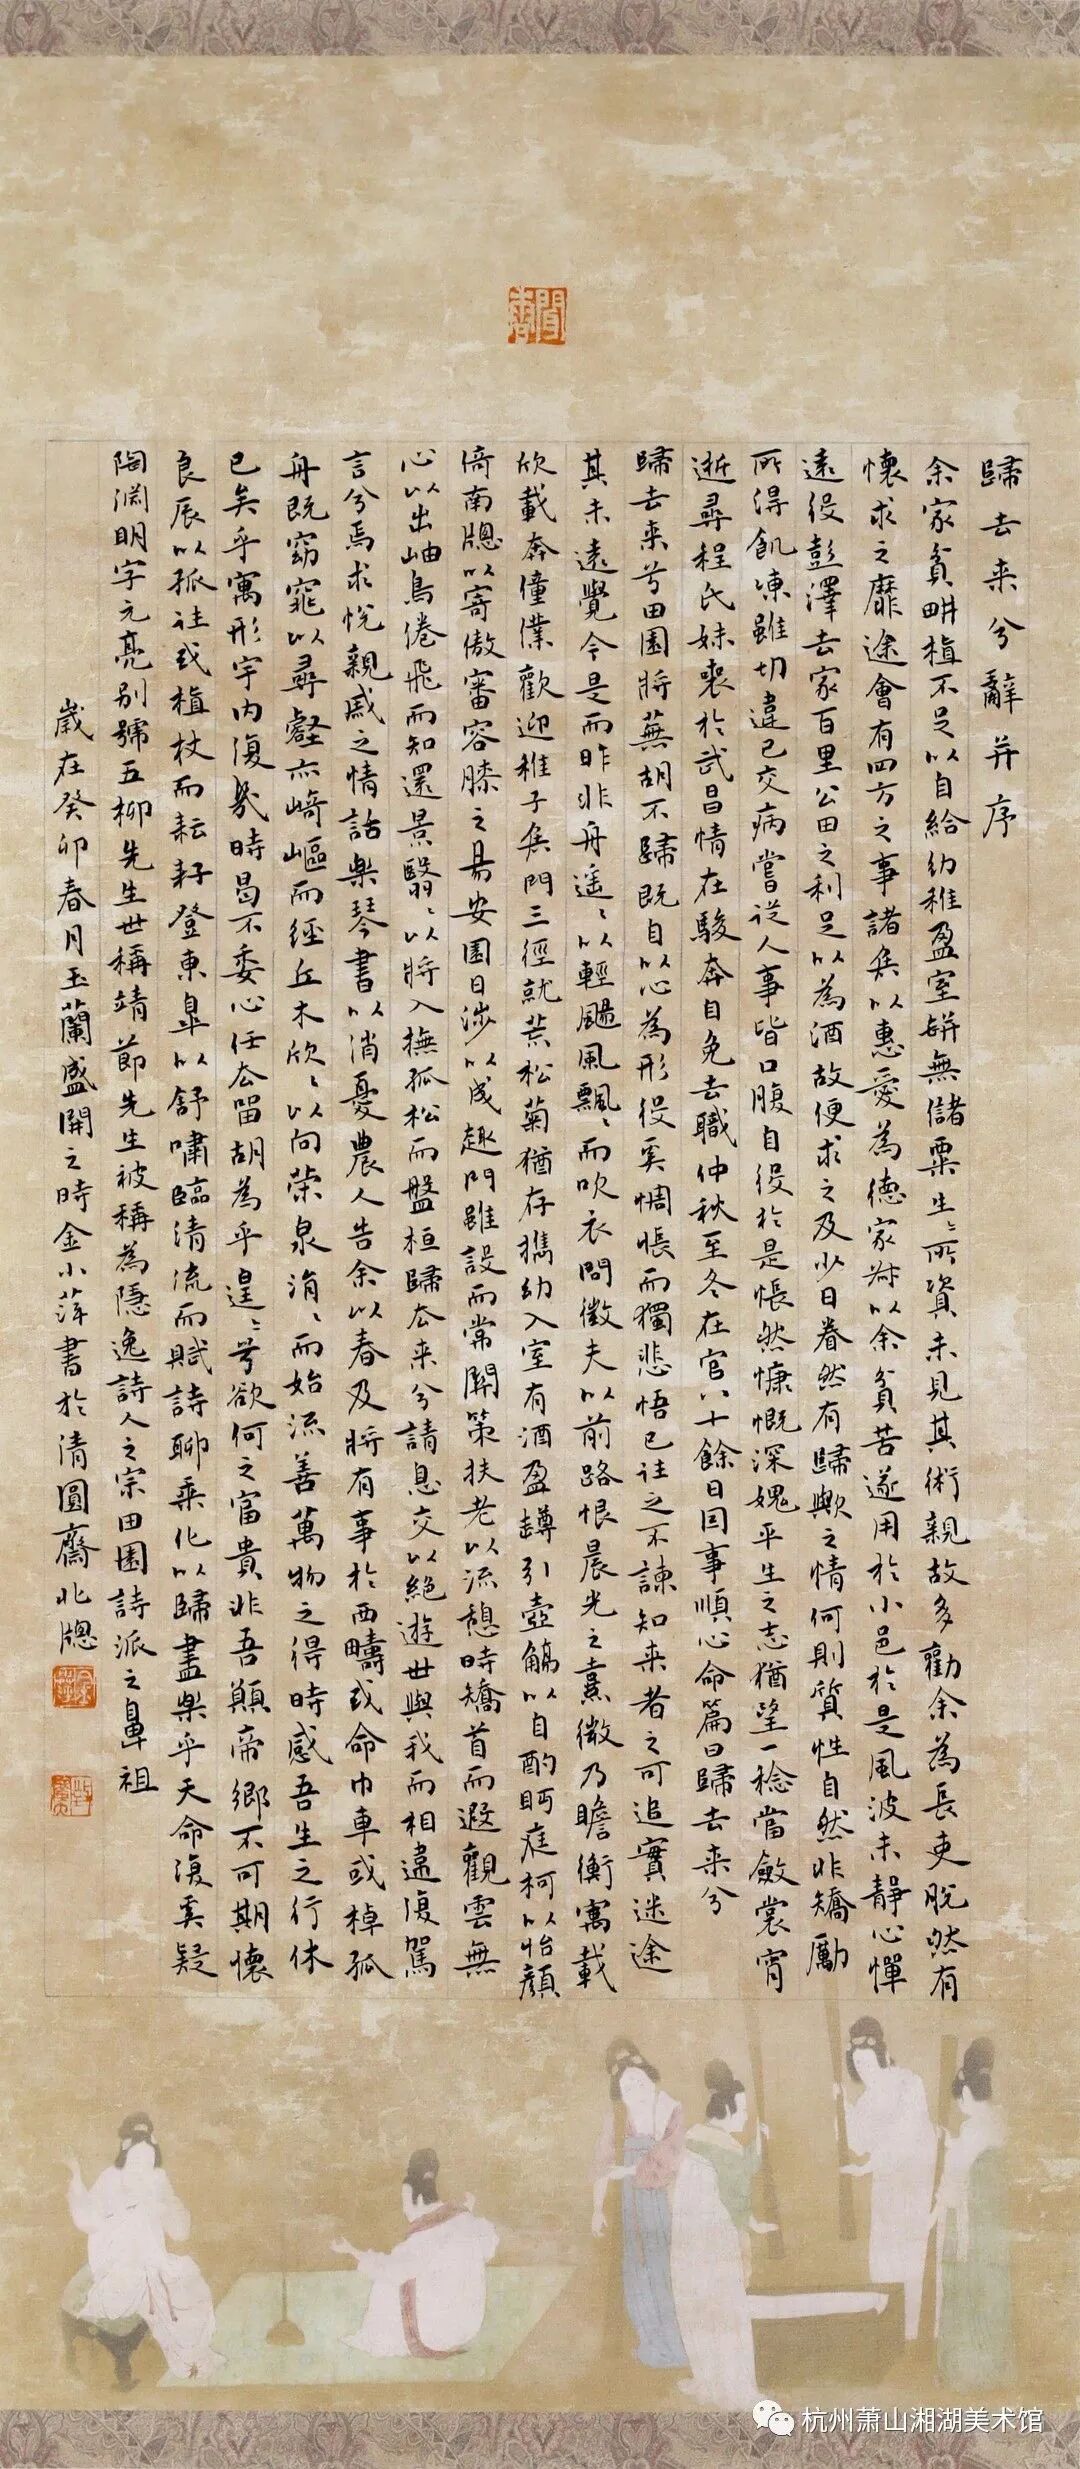 歸去来兮辭并序
余家貧畊植不足以自給幼稚盈室缾無儲粟生〻所資未見其術親故多勸余為長吏脫然有
懷求之靡途會有四方之事諸矦以惠愛為德家叔以余貧苦遂用於小邑於是風波未靜心憚
遠役彭澤去家百里公田之利足以為酒故便求之及少日眷然有歸歟之情何則質性自然非矯勵
所得飢凍雖切違己交病嘗從人事皆口腹自役於是悵然慷慨深媿平生之志猶望一稔當斂裳宵
逝尋程氏妹喪於武昌情在駿奔自免去職仲秋至冬在官八十餘日因事順心命篇曰歸去来兮
歸去来兮田園將蕪胡不歸既自以心為形役奚惆悵而獨悲悟已往之不諫知来者之可追實迷途
其未遠覺今是而昨非舟遥〻以輕颺風飄〻而吹衣問徵夫以前路恨晨光之熹微乃瞻衡㝢載
欣載奔僮僕歡迎稚子矦門三徑就荒松菊猶存攜幼入室有酒盈罇引壺觴以自酌眄庭柯以怡顏
倚南牕以寄傲審容膝之易安園日涉以成趣門雖設而常關策扶老以流憩時矯首而遐觀雲無
心以出岫鳥倦飛而知還景翳〻以將入撫孤松而盤桓歸去来兮請息交以絕遊世與我而相違復駕
言兮焉求悅親戚之情話樂琴書以消憂農人告余以春及將有事於西疇或命巾車或棹孤
舟既窈窕以尋壑亦崎嶇而經丘木欣〻以向榮泉涓〻而始流善萬物之得時感吾生之行休
已矣乎寓形宇内復幾時曷不委心任去留胡為乎遑〻兮欲何之富貴非吾願帝鄉不可期懷
良辰以孤往或植杖而耘耔登東皐以舒嘯臨清流而賦詩聊乘化以歸盡樂乎天命復奚疑
陶淵明字元亮别號五柳先生世稱靖節先生被稱為隱逸詩人之宗田園詩派之鼻祖
歲在癸卯春月玉蘭盛開之時金小萍書於清圓齋北牕
杭州萧山湘湖美术馆